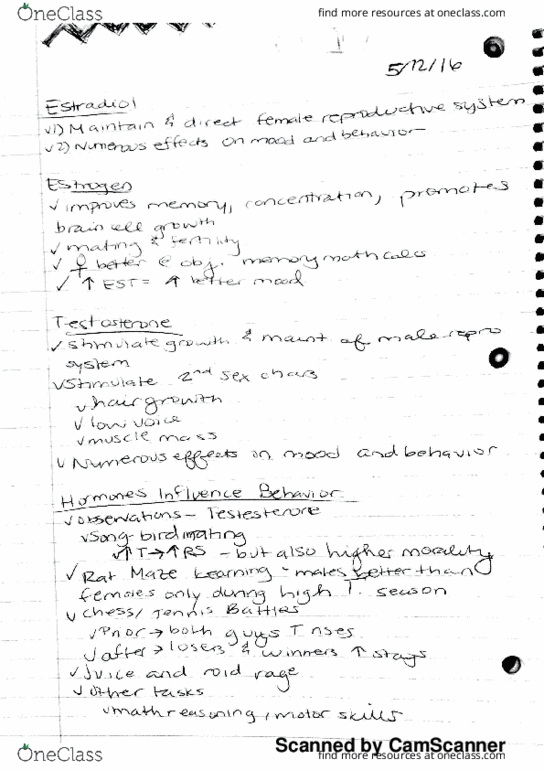 OneClass
find more resources at oneclass.com
find more resources at oneclass.com
5/12/16
Estradiol
✓1) Maintain & direct female reproductive system
✓2) Numerous effects on mood and behavior
Estrogen
✓ improves memory, concentration, promotes
brain cell growth
✓ mating & fertility
✓ ♀ better @ obj. memory math calcs
✓ ↑ EST = ↑ better mood
Testosterone
✓ stimulate growth & maint of male repro
system
✓ Stimulate 2nd sex chars
✓ hair growth
✓ low voice
✓ muscle mass
✓ Numerous effects on mood and behavior
Hormones Influence Behavior
✓ observations - Testesterone
✓ Song-bird mating
✓ ↑ T → ↑ RS - but also higher morality
✓ Rat Maze Learning - males better than
females only during high T. season
✓ Chess/Tennis Battles
✓ Prior → both guys T rises
✓ after → losers & winners ↑ stays
✓ juice and roid rage
✓ other tasks
✓ math reasoning, motor skills
Scanned by CamScanner
OneClass
find more resources at oneclass.com